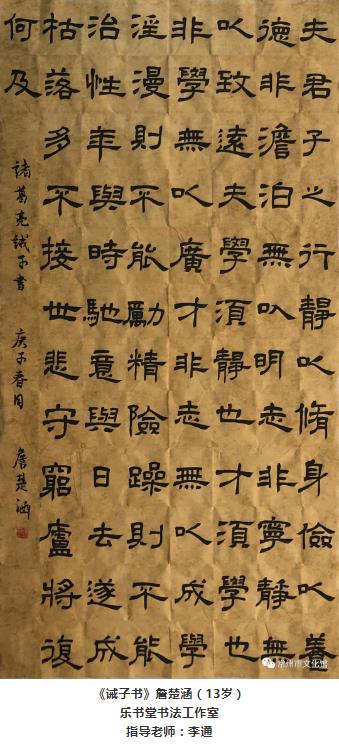 夫君子之行靜以脩身儉以養
德非澹泊無以明志非寧靜無
以致遠夫學須靜也才須學也
非學無以廣才非志無以成學
淫漫則不能勵精險躁則不能
治性年與時馳意與日去遂成
枯落多不接世悲守窮廬將復
何及
諸葛亮誡子書 庚子春月 詹楚涵
州市文化馆
《诫子书》詹楚涵（13岁）
乐书堂书法工作室
指导老师：李通